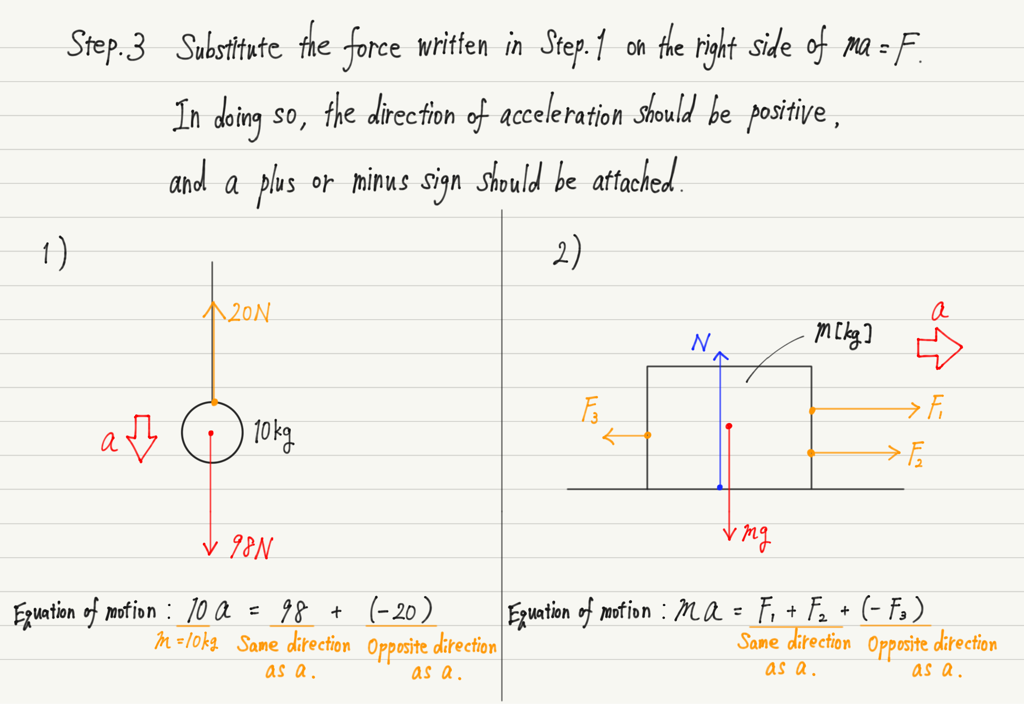 Step.3 Substitute the force written in Step.1 on the right side of ma = F.
In doing so, the direction of acceleration should be positive,
and a plus or minus sign should be attached.
1)
20N
a
10kg
98N
Equation of motion : 10 a = 98 + (-20)
m = 10kg Same direction as a. Opposite direction as a.
2)
a
m[kg]
N
F₃
F₁
F₂
mg
Equation of motion : m a = F₁ + F₂ + (- F₃)
Same direction as a. Opposite direction as a.